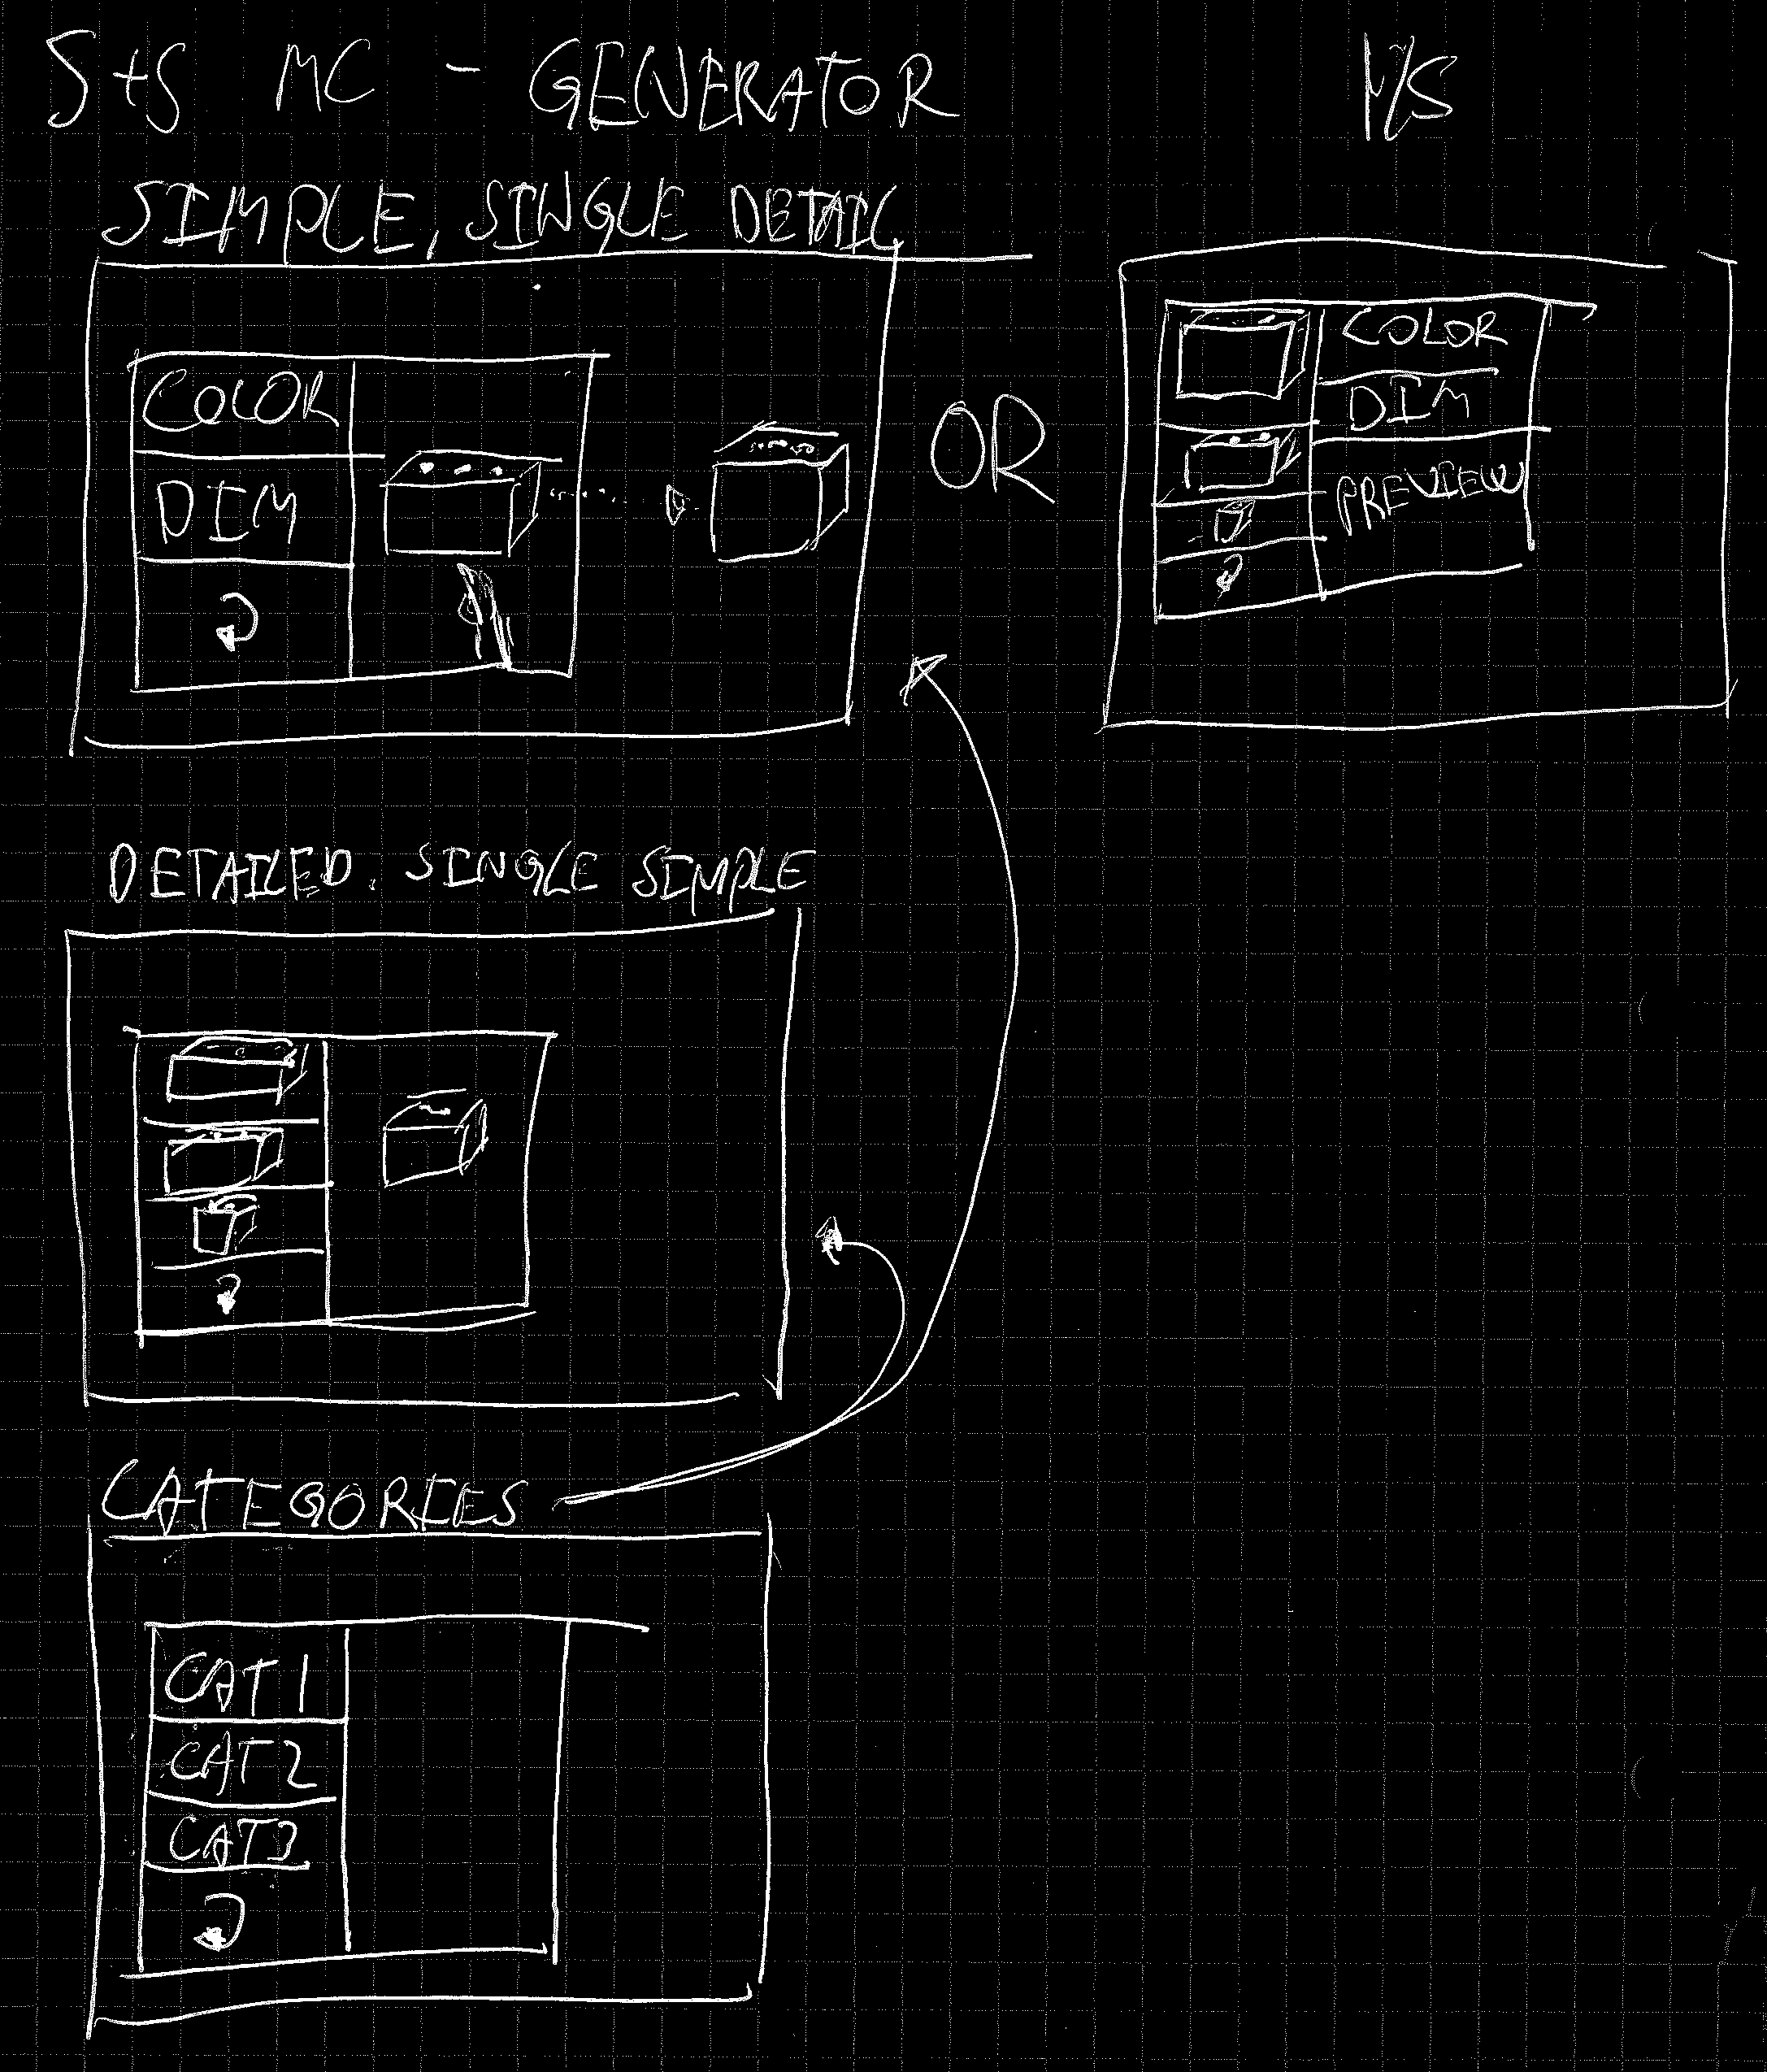 S+S MC - GENERATOR
1/S
SIMPLE, SINGLE DETAIL
COLOR
DIM
OR
COLOR
DIM
PREVIEW
DETAILED. SINGLE SIMPLE
CATEGORIES
CAT 1
CAT 2
CAT 3